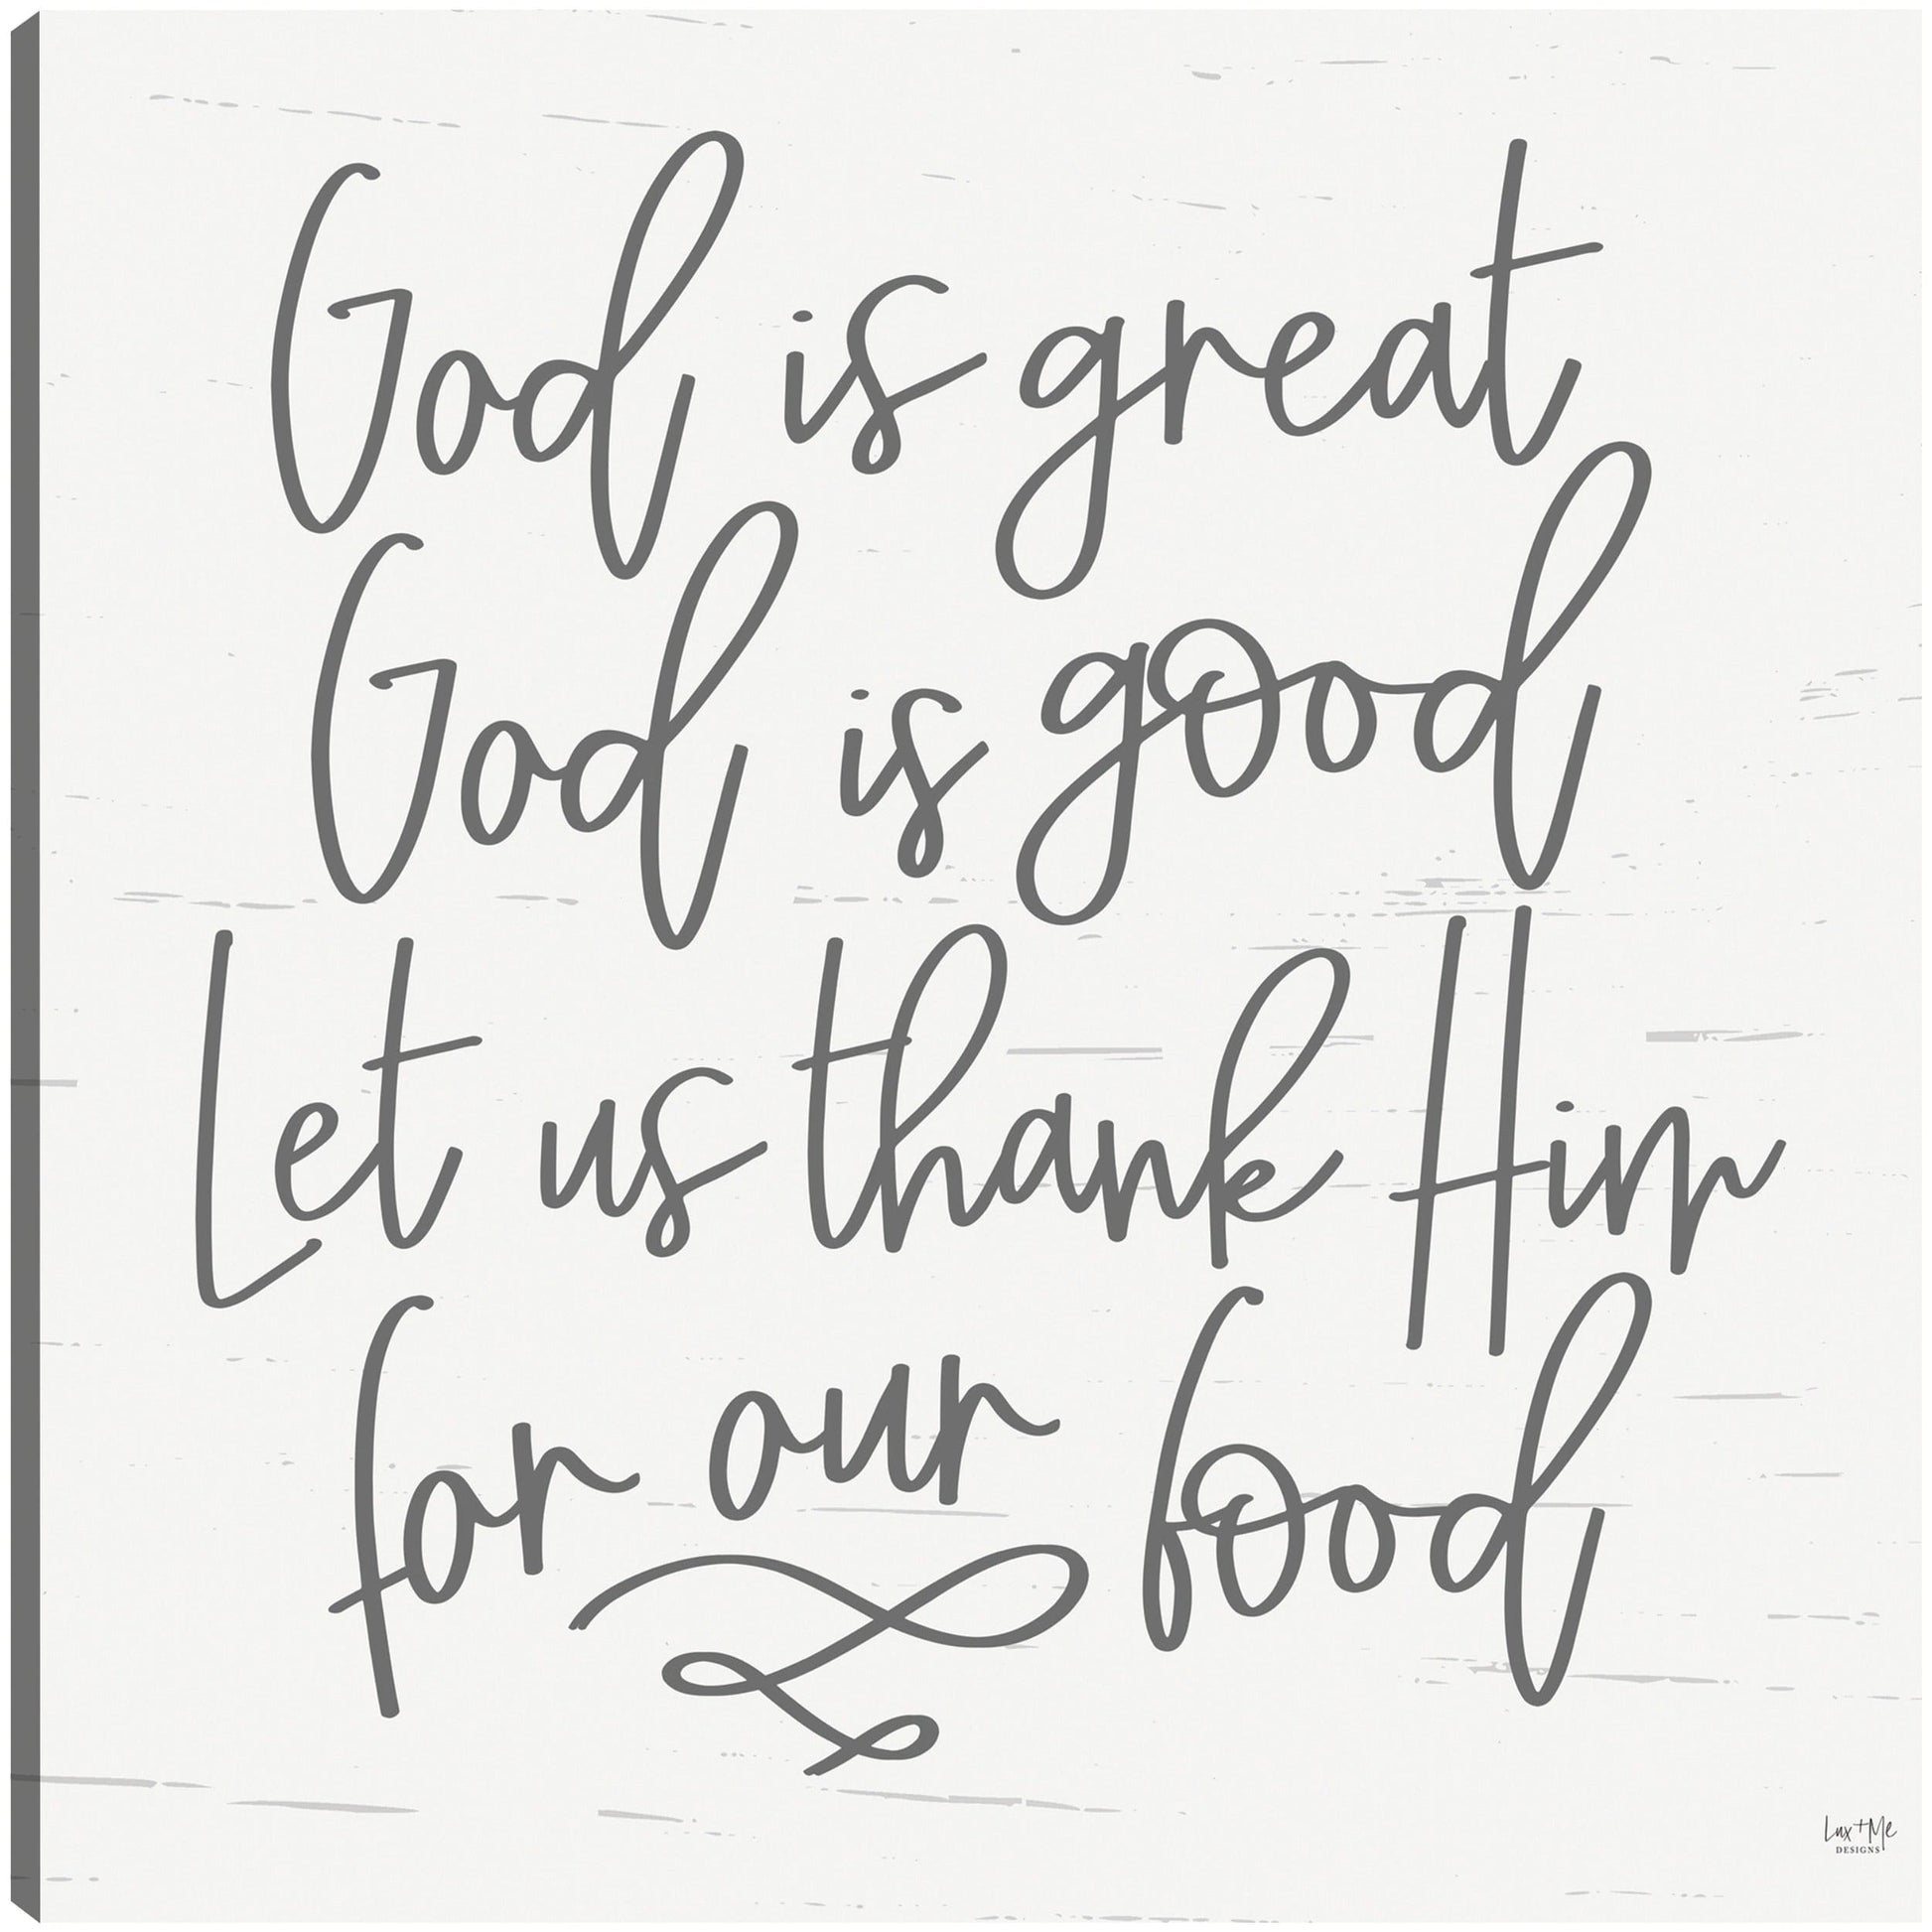 God is great
God is good
Let us thank Him
for our food
Lux + Me
DESIGNS